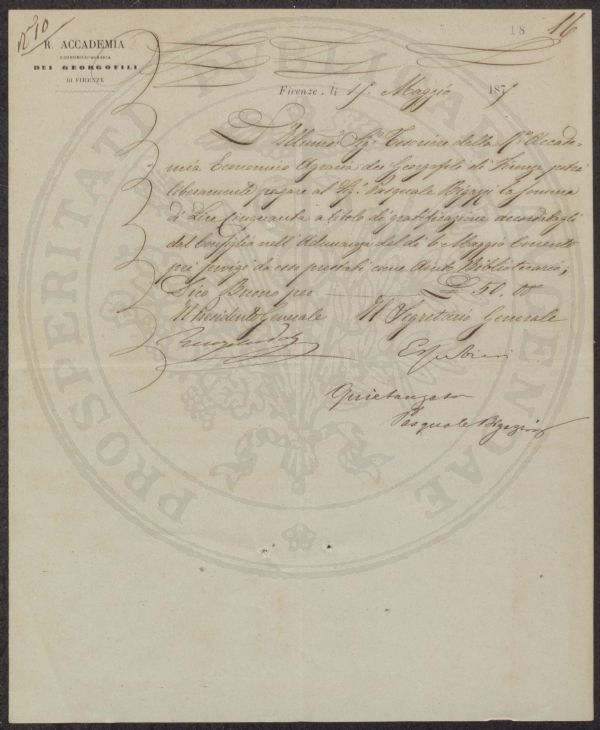 N.° 10
18
16
R. ACCADEMIA
ECONOMICO-AGRARIA
DEI GEORGOFILI
DI FIRENZE
Firenze, li 15 Maggio 187
L'Illmo. Sigr. Tesoriere della Ra. Accade-
mia Economico Agraria dei Georgofili di Firenze potrà
liberamente pagare al Sigr. Pasquale Bigazzi la somma
di Lire Cinquanta a titolo di gratificazione accordatagli
dal Consiglio nell'Adunanza del dì 6 Maggio Corrente
per servizi da esso prestati come Aiuto Bibliotecario;
Dico Buono per L 50. 00
Il Presidente Generale Il Segretario Generale
Quietanzato
Pasquale Bigazzi
PROSPERITATI PUBLICAE AUGENDAE